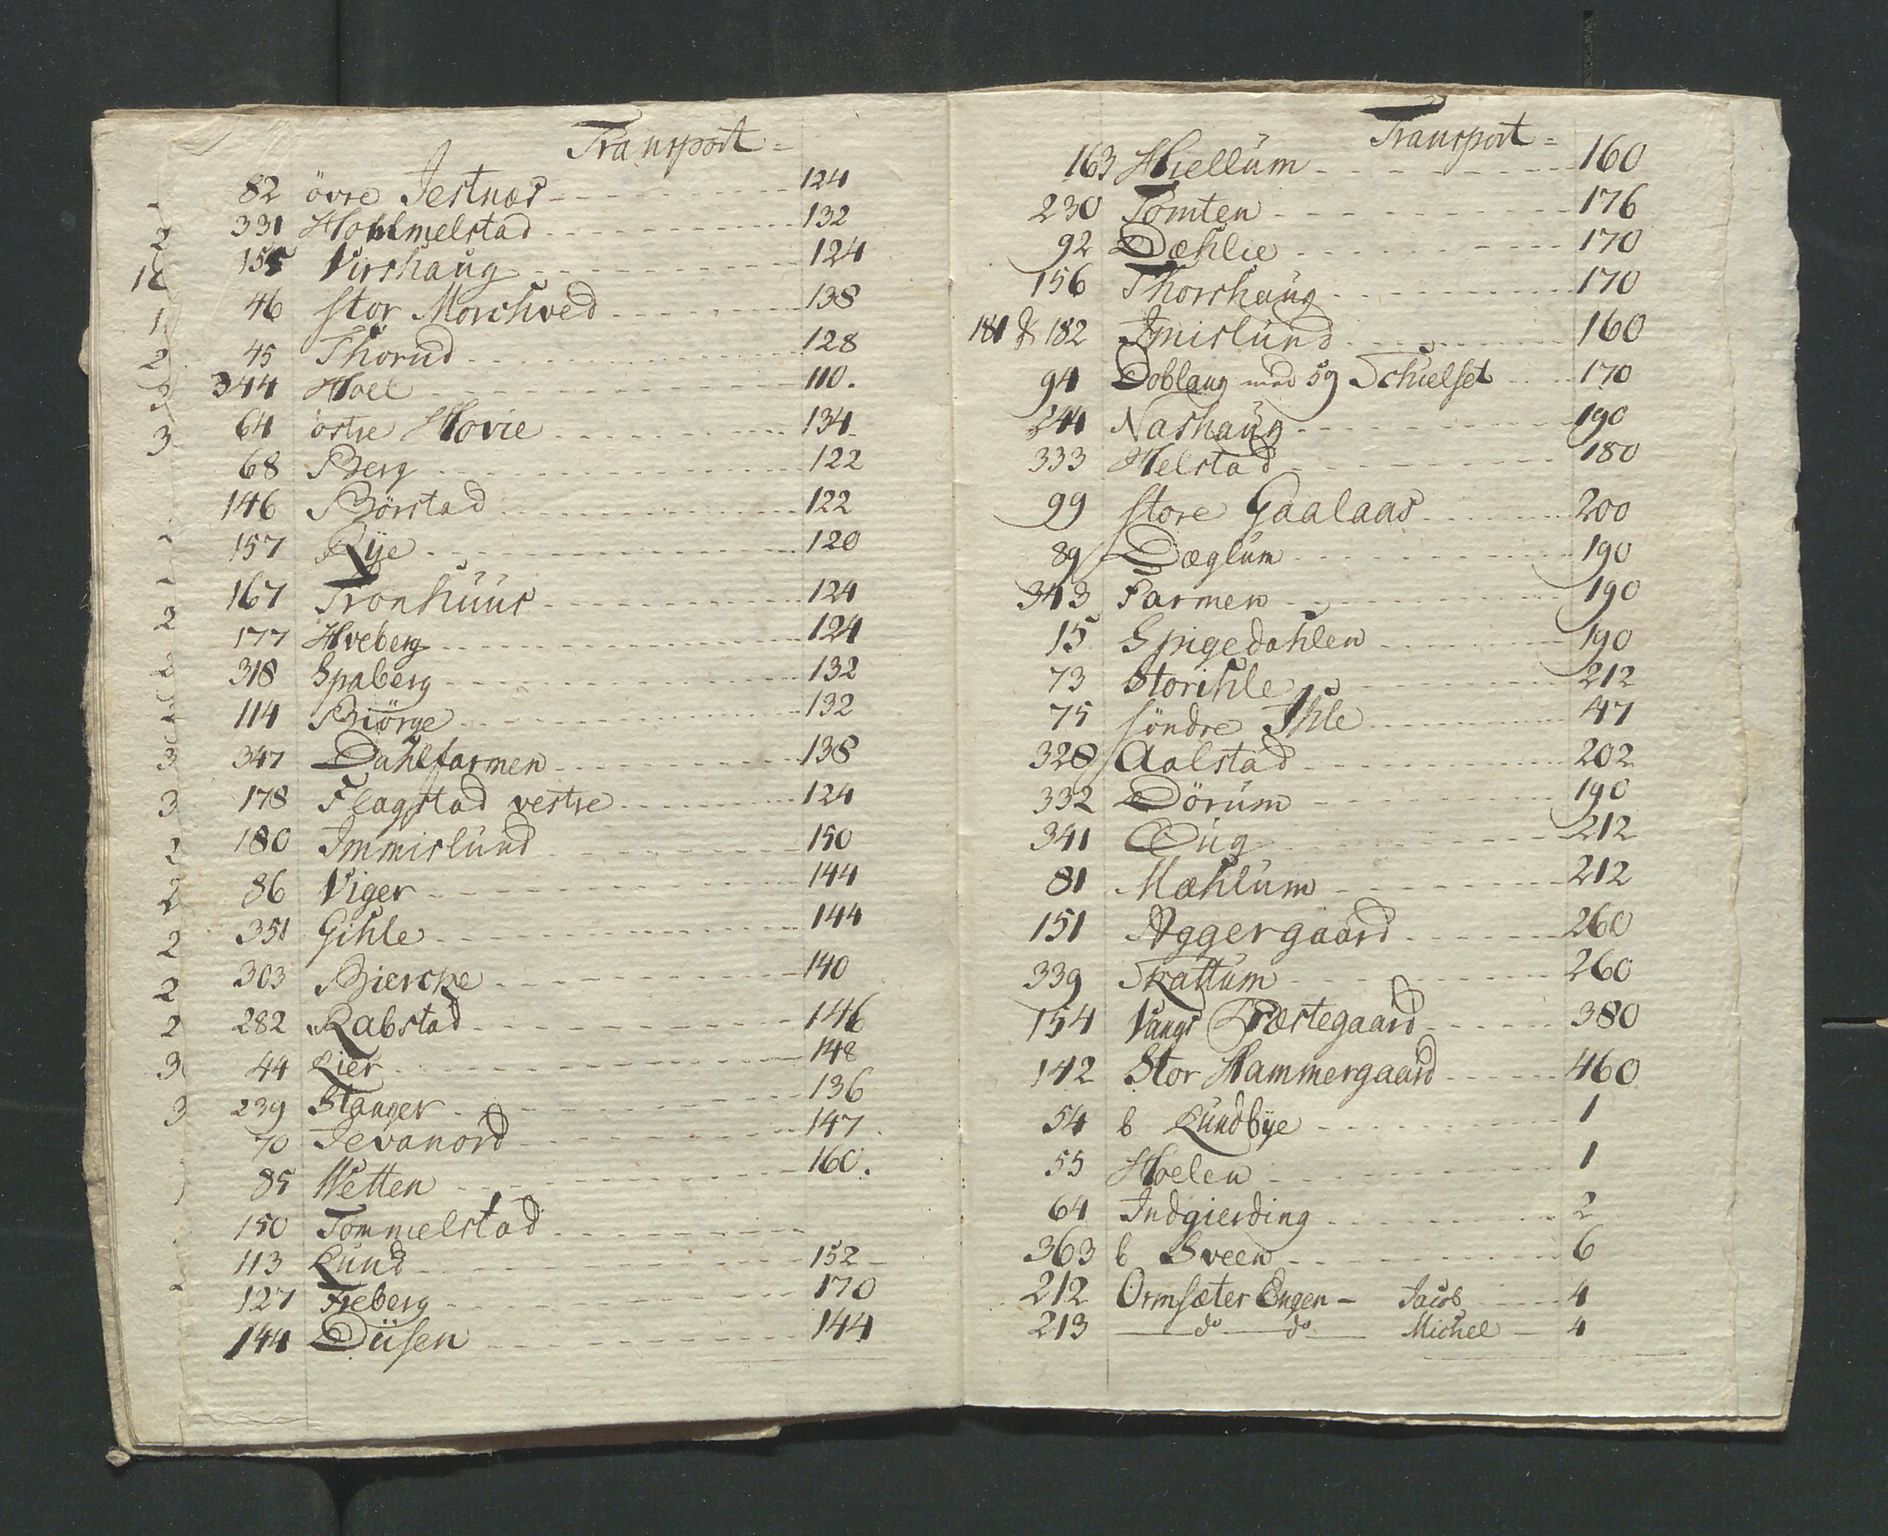 Transport =
82 övre Jestnæs 124
331 Hohlmelstad 132
155 Virshaug 124
46 Stor Morchved 138
45 Thorud 128
344 Hoel 110.
64 östre Hovie 134
68 Berg 122
146 Börstad 122
157 Rye 120
167 Tronhuus 124
177 Hveberg 124
318 Spaberg 132
114 Biörge 132
347 Dahlfarmen 138
178 Flagstad vestre 124
180 Immislund 150
86 Viger 144
351 Gihle 144
303 Biercke 140
282 Rabstad 146
44 Lier 148
239 Stanger 136
70 Jevanord 147
85 Vetten 160.
150 Tommelstad
113 Lund 152
127 Freberg 170
144 Düsen 144
Transport =
163 Hiellum 160
230 Tomten 176
92 Dæhlie 170
156 Thorshaug 170
181 & 182 Imislund 160
94 Doblaug med 59 Schielset 170
244 Nashaug 190
333 Helstad 180
99 Store Gaalaas 200
89 Dæglum 190
343 Farmen 190
15 Spigedahlen 190
73 Storihle 212
75 söndre Ihle 47
328 Aalstad 202
332 Dörum 190
341 Oug 212
81 Mæhlum 212
151 Aggergaard 260
339 Skattum 260
154 Vangs Præstegaard 380
142 Stor Hammergaard 460
54 b Lundbye 1
55 Hoelen 1
64 Indgierding 2
363 b Sveen 6
212 Ormsæter Engen – Jacob 4
213 do do Michel 4